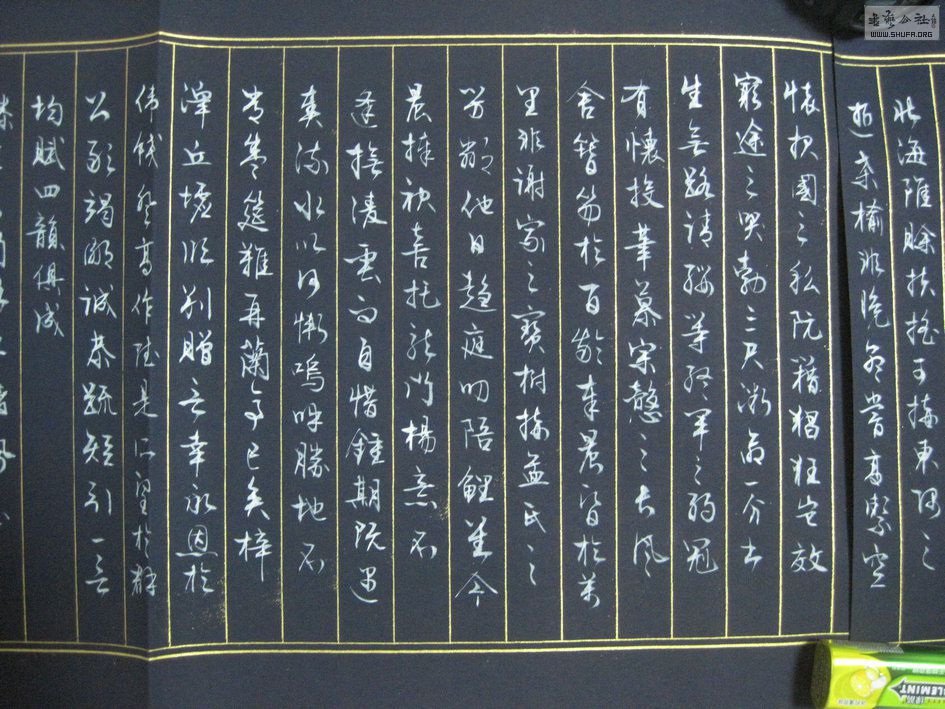 北海雖賒扶搖可接東隅已
逝桑榆非晚孟嘗高潔空
懷报國之情阮籍猖狂豈效
窮途之哭勃三尺微命一介书
生無路請纓等終軍之弱冠
有懷投筆慕宗慤之長風
舍簪笏於百齡奉晨昏於萬
里非謝家之寶樹接孟氏之
芳鄰他日趨庭叨陪鯉對今
晨捧袂喜托龍門楊意不
逢撫凌雲而自惜鍾期既遇
奏流水以何慚嗚呼勝地不
常盛筵難再蘭亭已矣梓
澤丘墟臨別贈言幸承恩於
偉餞登高作賦是所望於群
公敢竭鄙誠恭疏短引一言
均賦四韻俱成
WWW.SHUFA.ORG
LEMINT